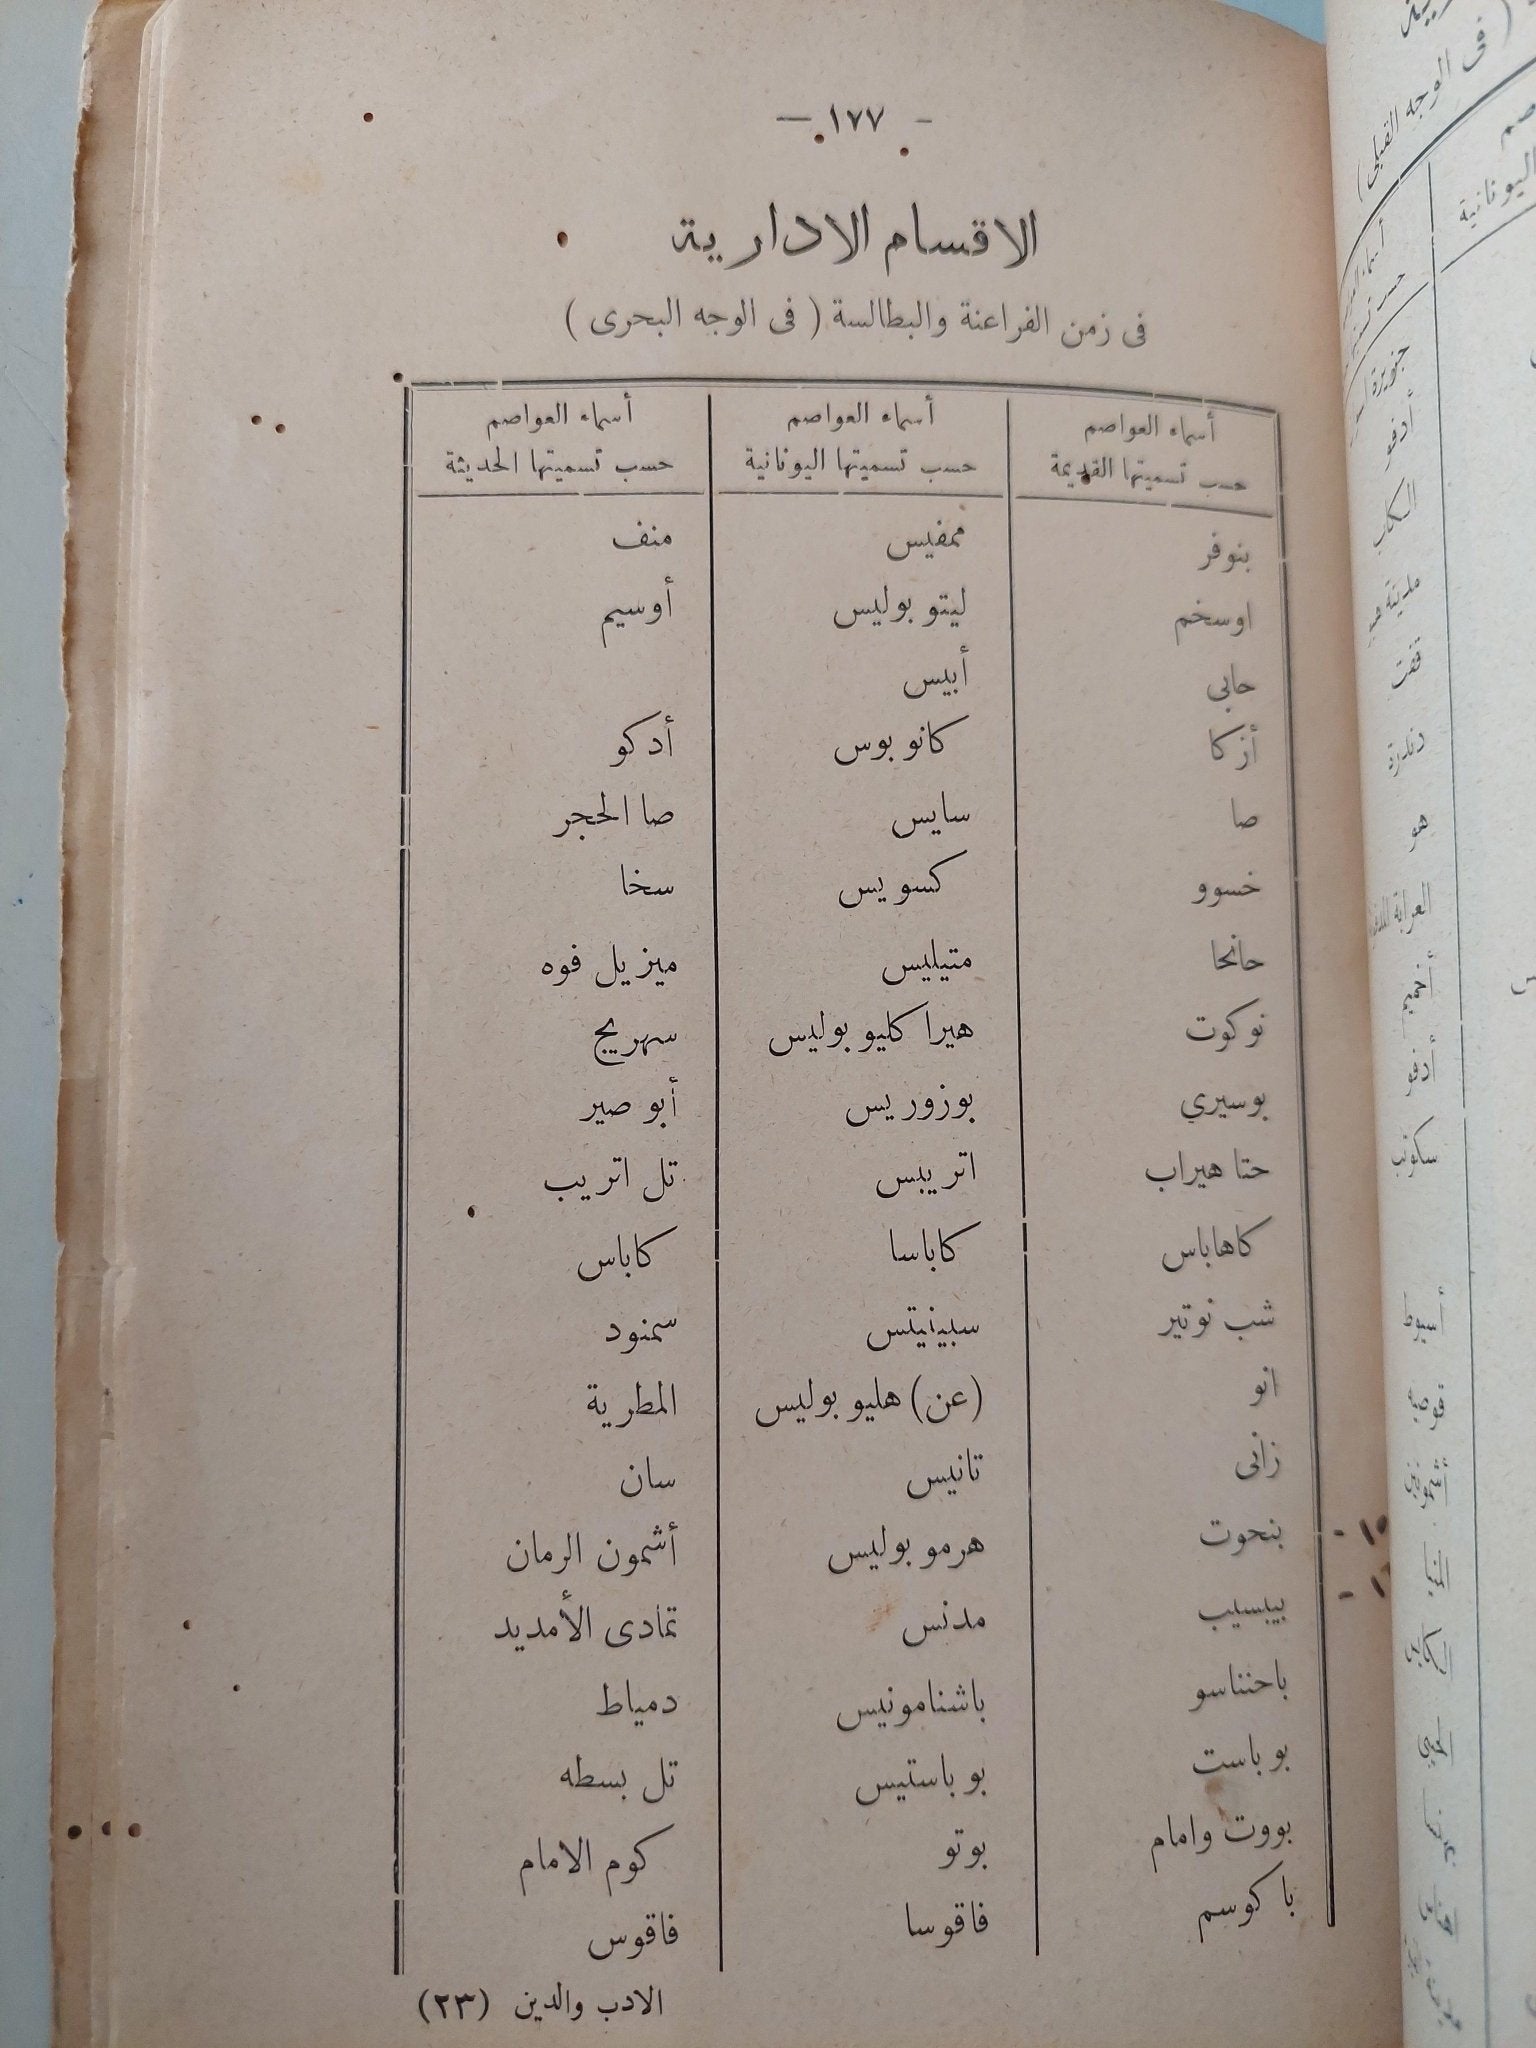 — ١٧٧ —
الاقسام الادارية
فى زمن الفراعنة والبطالسة ( فى الوجه البحرى )
أسماء العواصم حسب تسميتها القديمة
أسماء العواصم حسب تسميتها اليونانية
أسماء العواصم حسب تسميتها الحديثة
بنوفر ممفيس منف
اوسخم ليتو بوليس أوسيم
حابى أبيس
أزكا كانوبوس أدكو
صا سايس صا الحجر
خسوو كسويس سخا
حانحا متيليس ميزيل فوه
نوكوت هيرا كليو بوليس سهريج
بوسيري بوزوريس أبو صير
حتا هيراب اتريبس تل اتريب
كاهاباس كاباسا كاباس
شب نوتير سبينيتس سمنود
انو (عن) هليو بوليس المطرية
زانى تانيس سان
بنحوت هرمو بوليس أشمون الرمان
بيبسيب مدنس تمادى الأمديد
باحنناسو باشنامونيس دمياط
بوباست بوباستيس تل بسطه
بووت وامام بوتو كوم الامام
باكوسم فاقوسا فاقوس
الادب والدين (٢٣)
( فى الوجه القبلى )
اليونانية
أدفو
الكاب
قفت
دندرة
هو
أخميم
أدفو
أسيوط